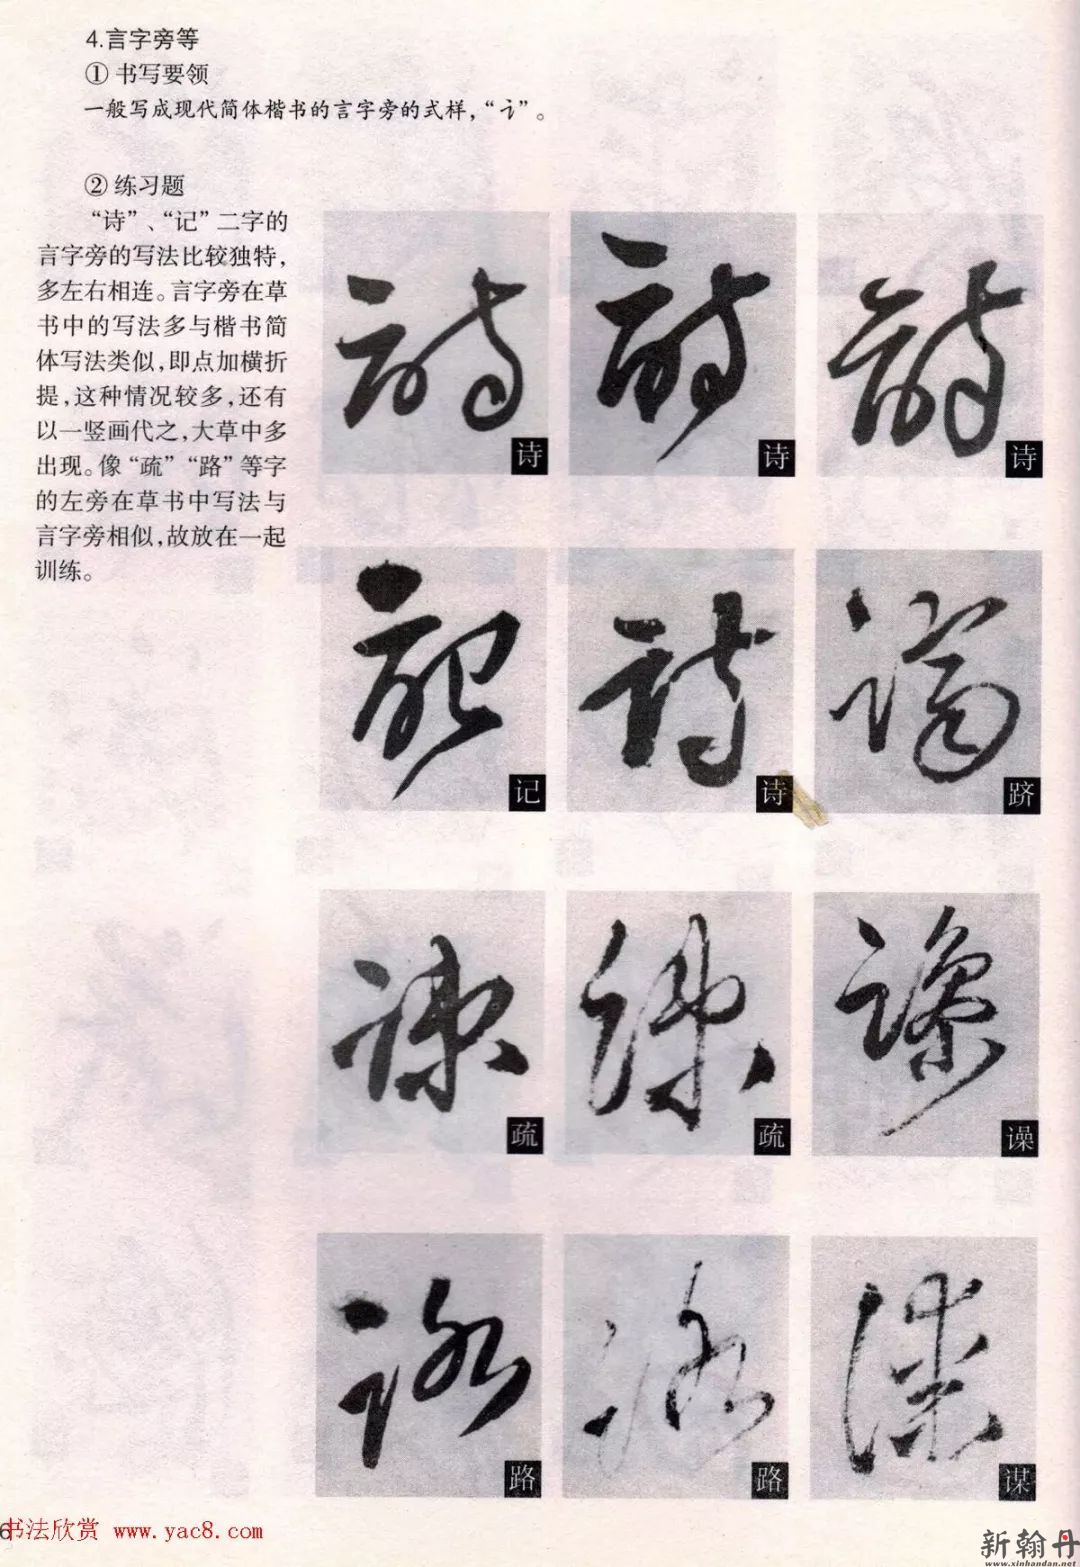 4.言字旁等
① 书写要领
一般写成现代简体楷书的言字旁的式样，“讠”。
② 练习题
“诗”、“记”二字的
言字旁的写法比较独特，
多左右相连。言字旁在草
书中的写法多与楷书简
体写法类似，即点加横折
提，这种情况较多，还有
以一竖画代之，大草中多
出现。像“疏”“路”等字
的左旁在草书中写法与
言字旁相似，故放在一起
训练。
诗
诗
诗
记
诗
跻
疏
疏
谋
路
路
谋
6
书法欣赏 www.yac8.com
新翰丹
www.xinhandan.net